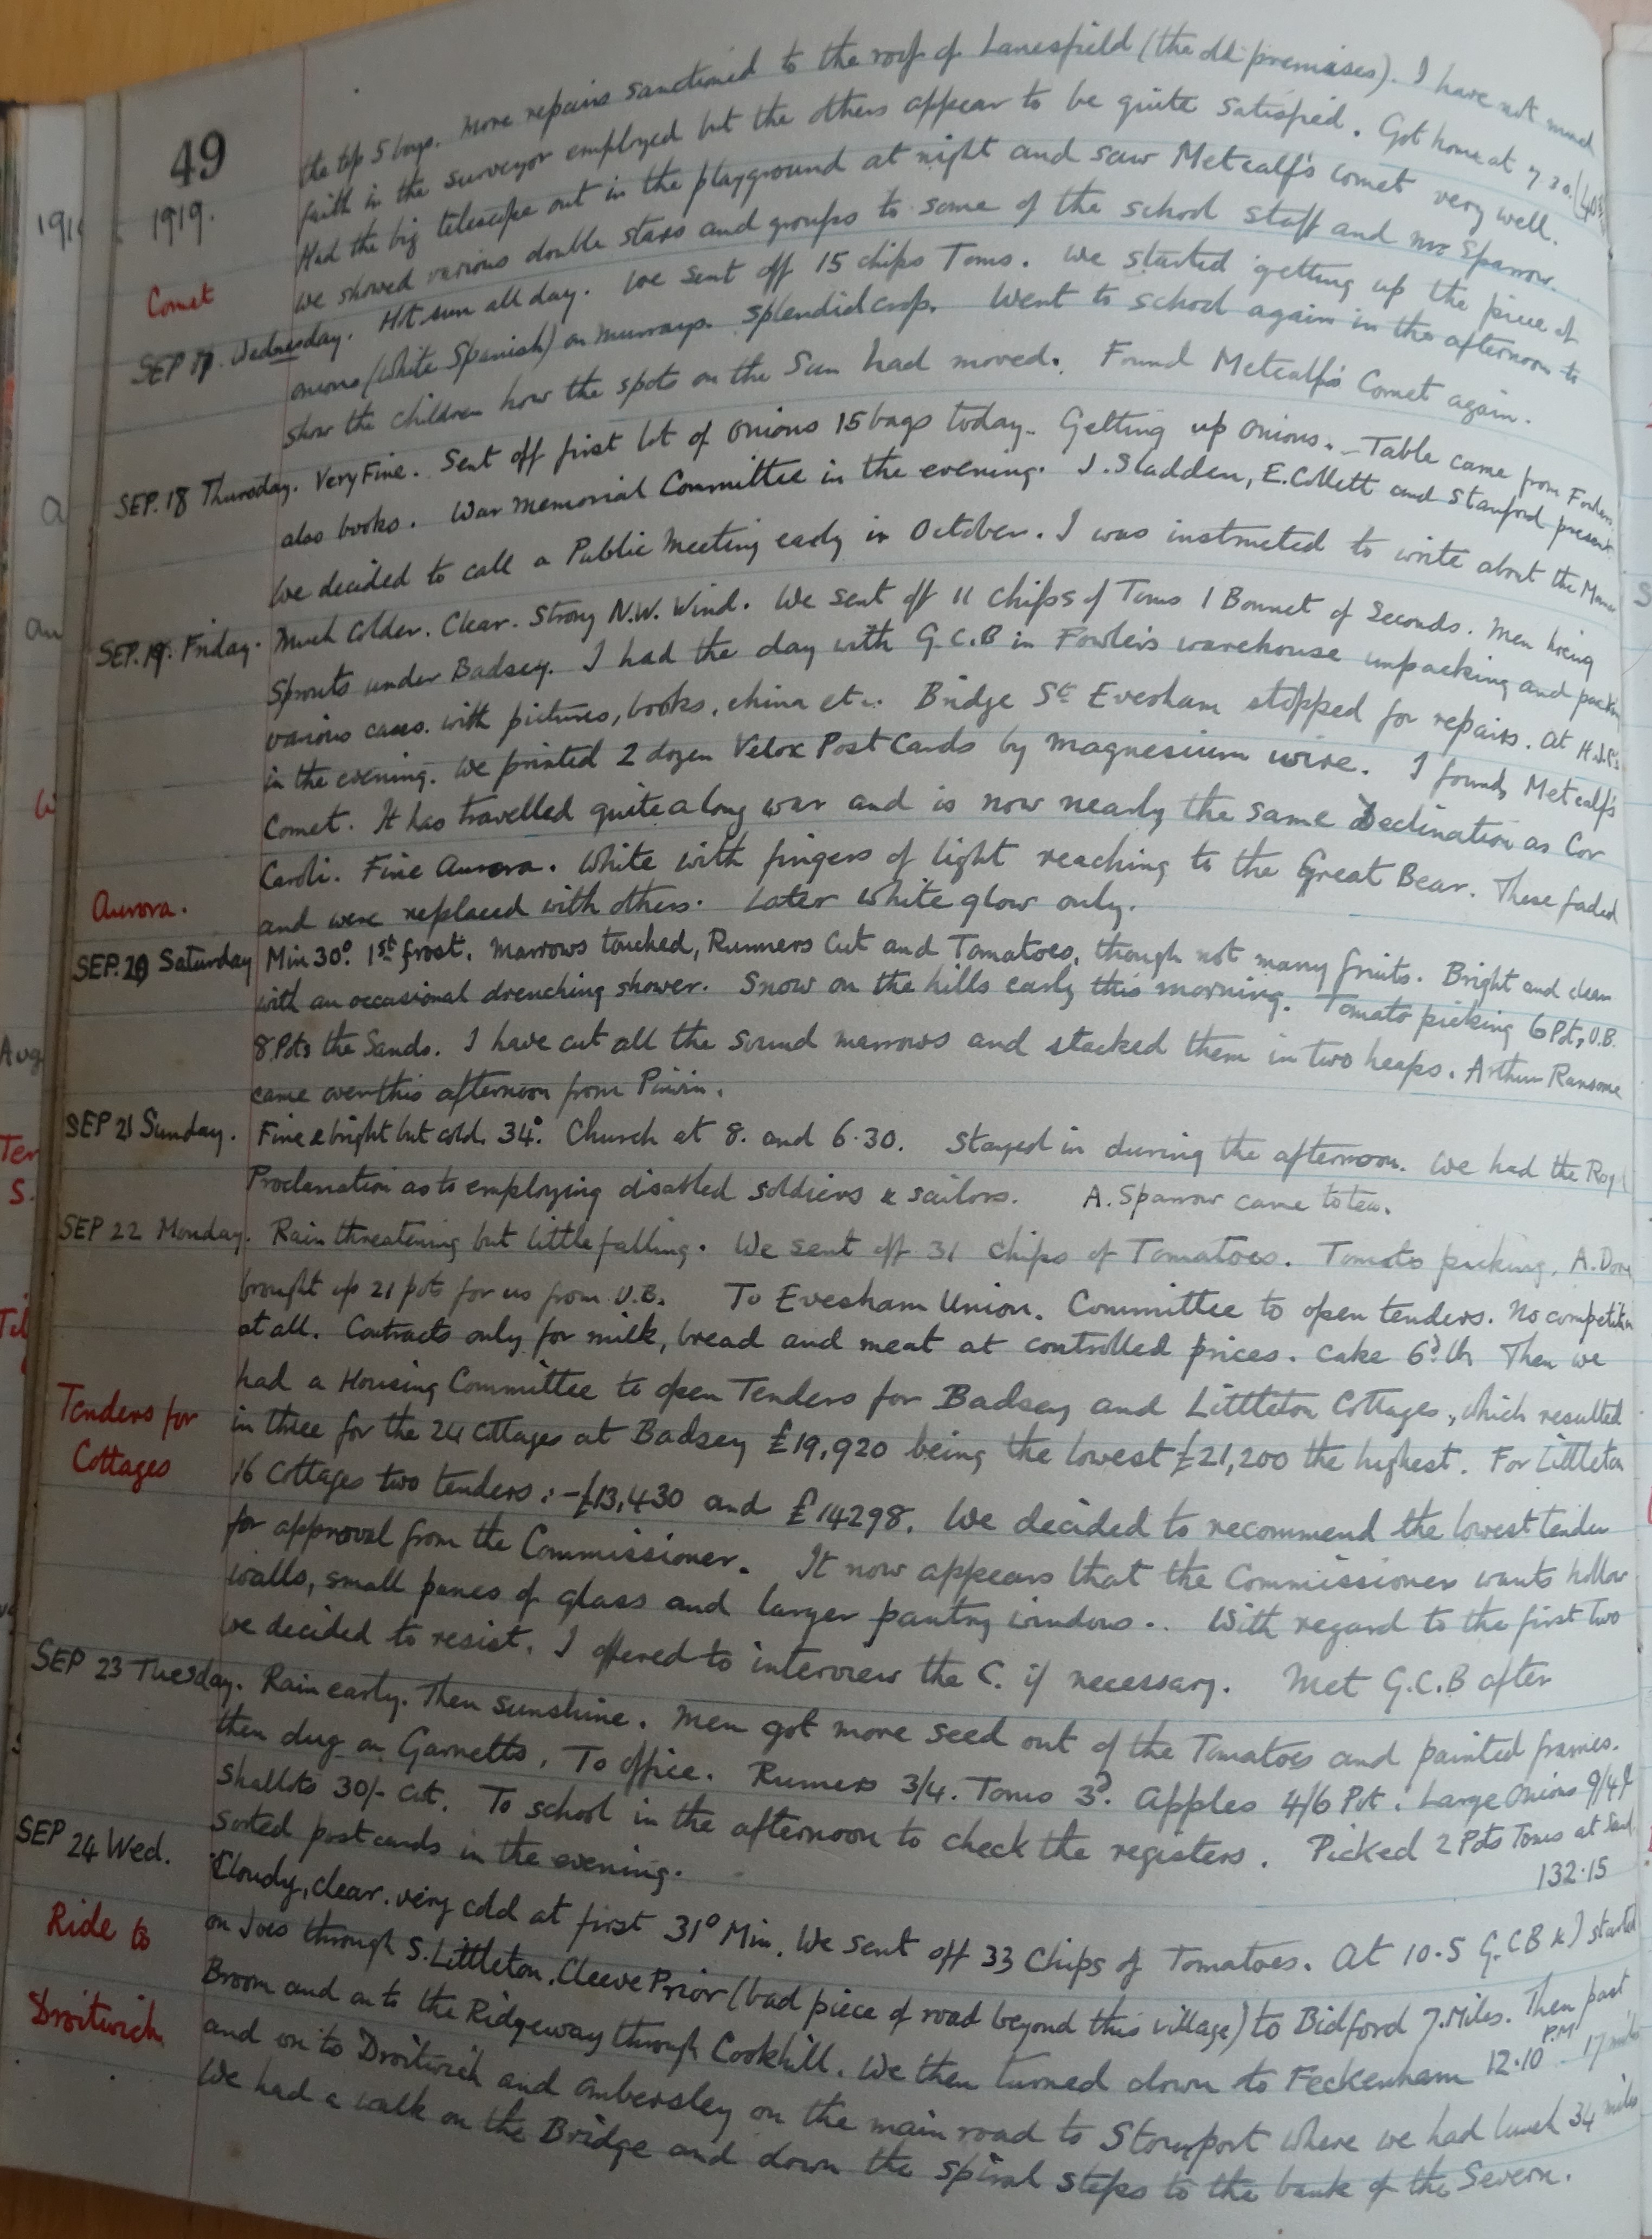 49
1919.
the top 5 boys. More repairs sanctioned to the roof of Lanesfield (the old premises). I have not much
faith in the surveyor employed but the others appear to be quite satisfied. Got home at 7.30.
Had the big telescope out in the playground at night and saw Metcalf's comet very well.
Comet
We showed various double stars and groups to some of the school staff and Mrs Sparrow.
SEP 17 Wednesday. Hot sun all day. We sent off 15 chips Toms. We started getting up the piece of
onions (White Spanish) on Murrays. Splendid crop. Went to school again in the afternoon to
show the children how the spots on the Sun had moved. Found Metcalf's Comet again.
SEP. 18 Thursday. Very Fine. Sent off first lot of Onions 15 bags today. Getting up Onions. Table came from Fowlers
also books. War Memorial Committee in the evening. J. Sladden, E. Collett and Stanford present
We decided to call a Public Meeting early in October. I was instructed to write about the
SEP. 19. Friday. Much Colder. Clear. Strong N.W. Wind. We sent off 11 Chips of Toms 1 Bonnet of Seconds. Men hoeing
Sprouts under Badsey. I had the day with G.C.B in Fowler's warehouse unpacking and packing
various cases with pictures, books, china etc. Bridge St Evesham stopped for repairs. At
in the evening. We printed 2 dozen Velox Post Cards by magnesium wire. I found Metcalf's
Comet. It has travelled quite a long way and is now nearly the same Declination as Cor
Caroli. Fine Aurora. White with fingers of light reaching to the Great Bear. These faded
Aurora.
and were replaced with others. Later White glow only.
SEP. 20 Saturday Min 30°. 1st frost. Marrows touched, Runners Cut and Tomatoes, though not many fruits. Bright and clear
with an occasional drenching shower. Snow on the hills early this morning. Tomato picking 6 Pots U.B.
8 Pots the Sands. I have cut all the sound marrows and stacked them in two heaps. Arthur Ransome
came over this afternoon from Pinvin.
SEP 21 Sunday. Fine & bright but cold. 34°. Church at 8. and 6.30. Stayed in during the afternoon. We had the
Proclamation as to employing disabled soldiers & sailors. A. Sparrow came to tea.
SEP 22 Monday. Rain threatening but little falling. We sent off 31 Chips of Tomatoes. Tomato picking. A.
brought up 21 pots for us from U.B. To Evesham Union. Committee to open tenders. No competition
at all. Contracts only for milk, bread and meat at controlled prices. Cake 6d lb. Then we
had a Housing Committee to open Tenders for Badsey and Littleton Cottages, which resulted
Tenders for
Cottages
in three for the 24 Cottages at Badsey £19,920 being the lowest £21,200 the highest. For Littleton
16 Cottages two tenders :- £13,430 and £14298. We decided to recommend the lowest tender
for approval from the Commissioner. It now appears that the Commissioner wants hollow
walls, small panes of glass and larger pantry windows.. With regard to the first two
we decided to resist. I offered to interview the C. if necessary. Met G.C.B after
SEP 23 Tuesday. Rain early. Then sunshine. Men got more seed out of the Tomatoes and painted frames.
then dug on Garnetts. To office. Runners 3/4. Toms 3d. Apples 4/6 Pot. Large Onions
Shallots 30/- cwt. To school in the afternoon to check the registers. Picked 2 Pots Toms at
Sorted postcards in the evening.
132.15
SEP 24 Wed. Cloudy, clear. very cold at first 31° Min. We sent off 33 Chips of Tomatoes. At 10.5 G.C.B & I started
Ride to
Droitwich
on Joes through S. Littleton. Cleeve Prior (bad piece of road beyond this village) to Bidford 7. Miles. Then past
Broom and on to the Ridgeway through Cookhill. We then turned down to Feckenham 12.10 P.M 17 miles
and on to Droitwich and Ombersley on the main road to Stourport where we had lunch 34 miles
We had a walk on the Bridge and down the spiral steps to the bank of the Severn.